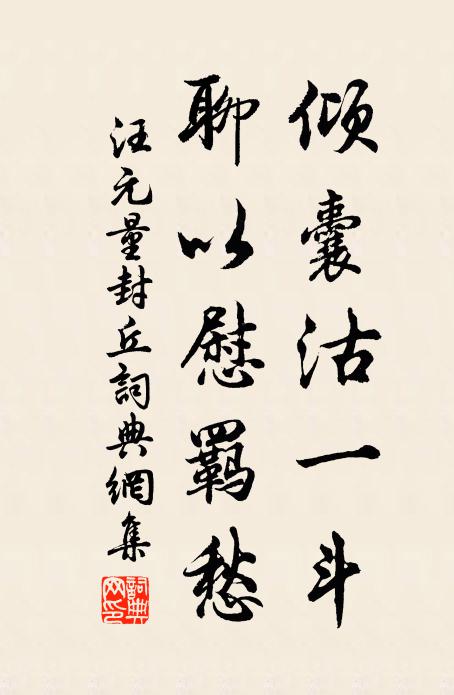 傾囊沽一斗
聊以慰羈愁
汪元量封丘詞典網集
詞典网印